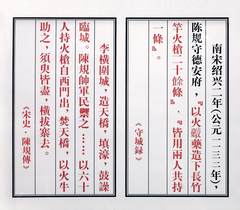 南宋绍兴二年(公元一一三二年),
陳規守德安府,『以火礮藥造下長竹
竿火槍二十餘條』,『皆用兩人共持
一條』。
《守城錄》
李橫圍城,造天橋,填濠,鼓譟
臨城。陳規帥軍民禦之……以六十
人持火槍自西門出,焚天橋,以火牛
助之,須臾皆盡,橫拔寨去。
《宋史·陳規傳》